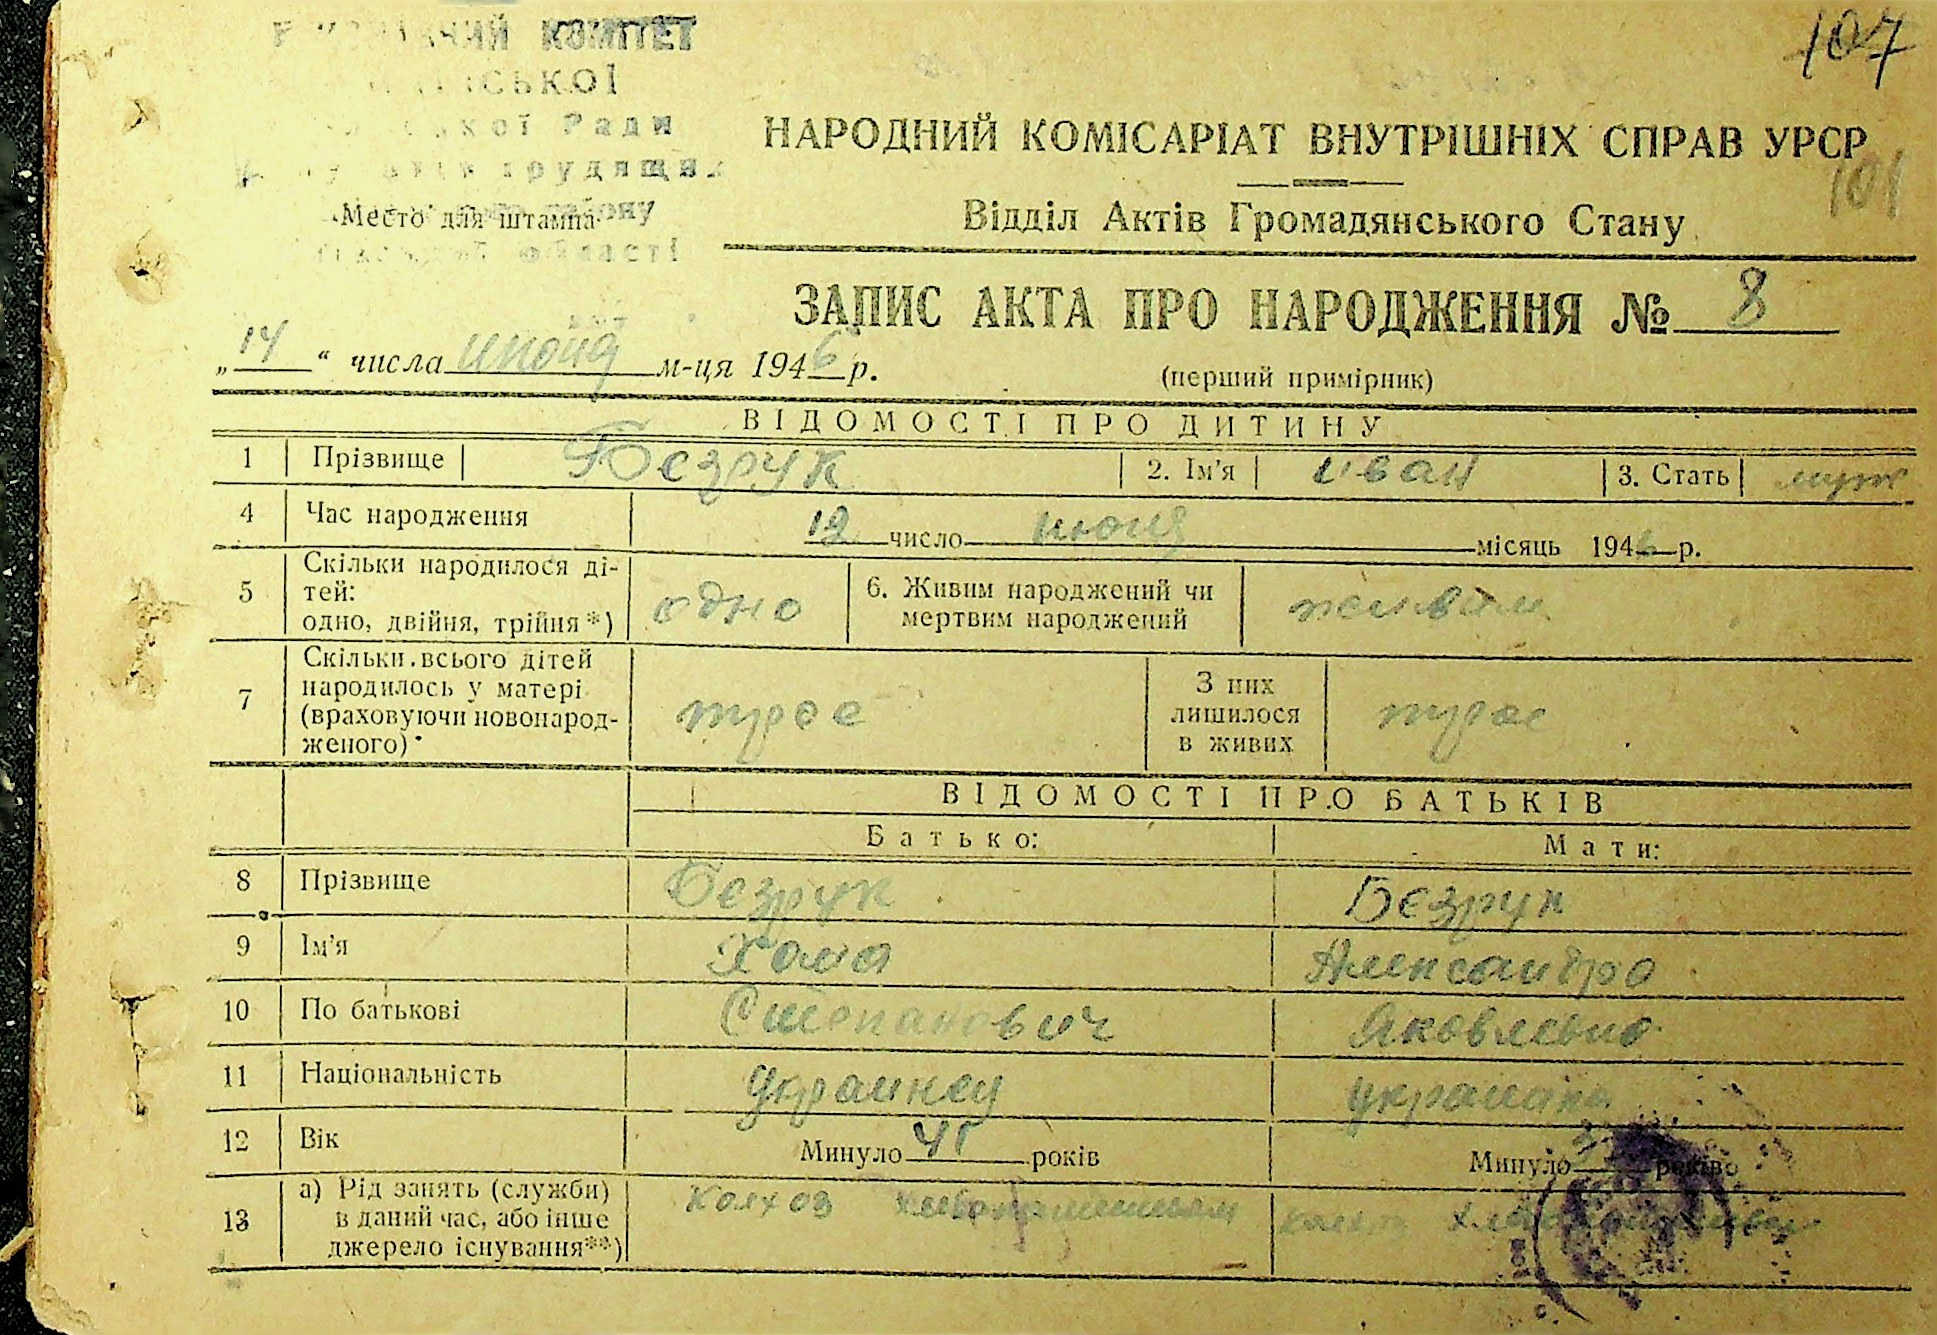 107
КОМІТЕТ
СЬКОЇ
Ради
трудящих
району
Место для штампа
області
НАРОДНИЙ КОМІСАРІАТ ВНУТРІШНІХ СПРАВ УРСР
101
Відділ Актів Громадянського Стану
ЗАПИС АКТА ПРО НАРОДЖЕННЯ № 8
„14“ числа июня м-ця 1946 р.
(перший примірник)
ВІДОМОСТІ ПРО ДИТИНУ
1 Прізвище Безрук 2. Ім'я иван 3. Стать муж
4 Час народження 12 число июня місяць 1946 р.
5 Скільки народилося ді-
тей:
одно, двійня, трійня*) одно 6. Живим народжений чи
мертвим народжений живым
7 Скільки всього дітей
народилось у матері
(враховуючи новонарод-
женого) трое З них
лишилося
в живих трое
ВІДОМОСТІ ПРО БАТЬКІВ
Батько: Мати:
8 Прізвище Безрук Безрук
9 Ім'я Хома Александра
10 По батькові Степанович Яковлевна
11 Національність украинец украинка
12 Вік Минуло років Минуло років
13 а) Рід занять (служби)
в даний час, або інше
джерело існування**) Колхоз